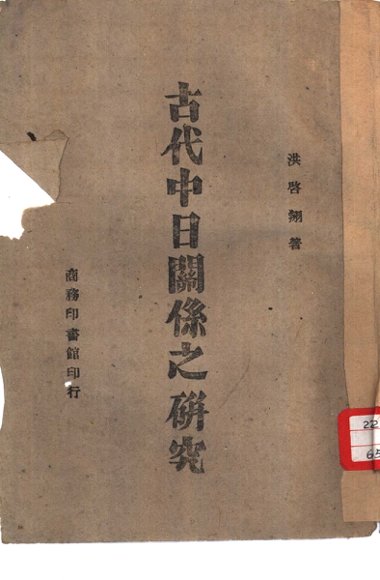 洪啓翔著
古代中日關係之研究
商務印書館印行
22
65